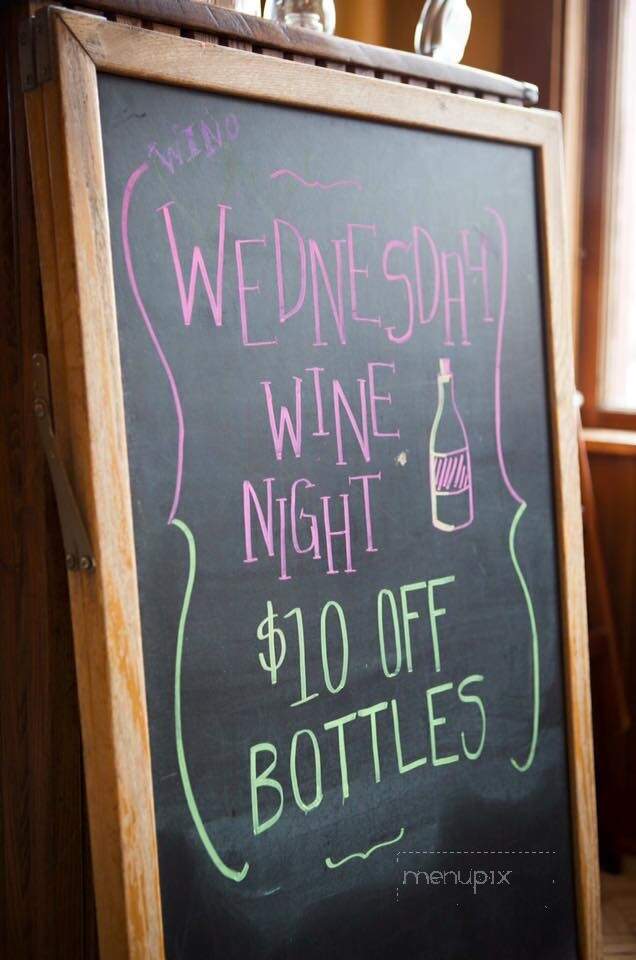 WINO
WEDNESDAY
WINE
NIGHT
$10 OFF
BOTTLES
menupix